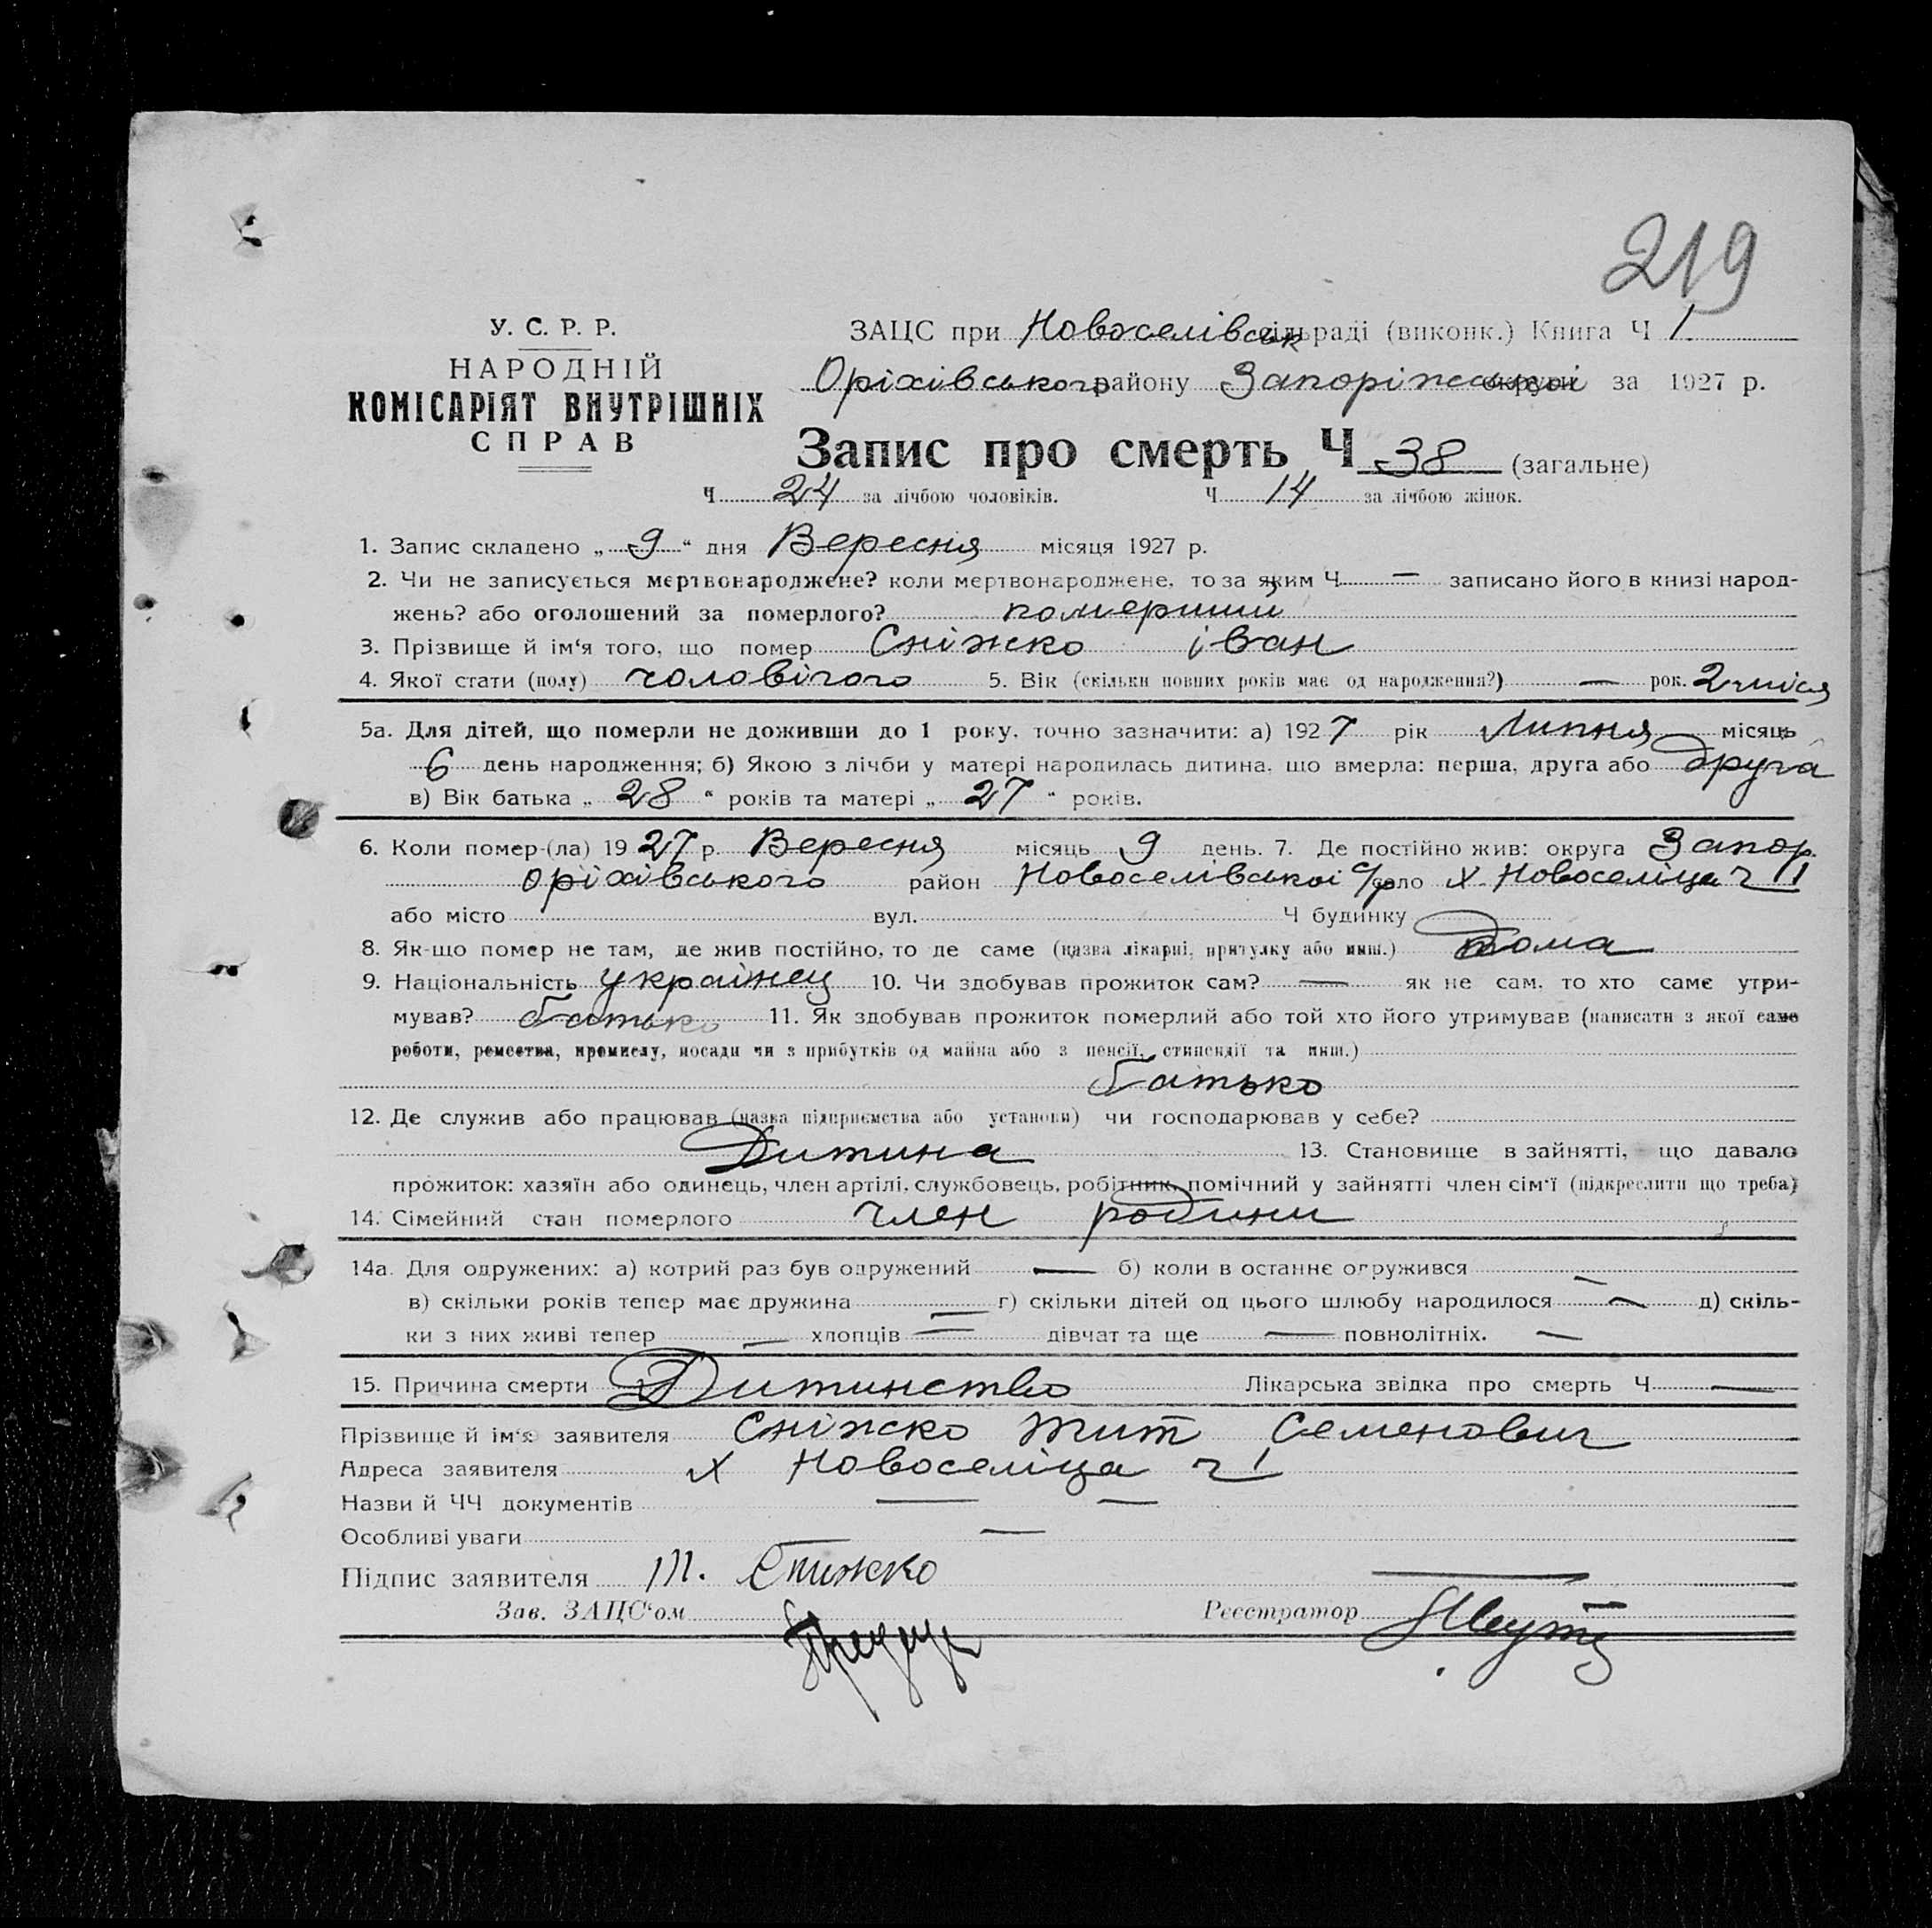 219
У. С. Р. Р.
НАРОДНІЙ
КОМІСАРІЯТ ВНУТРІШНІХ
СПРАВ
ЗАЦС при Новоселівськ сільраді (виконк.) Книга Ч 1.
Оріхівського району Запоріжської округи за 1927 р.
Запис про смерть Ч 38 (загальне)
Ч 24 за лічбою чоловіків. Ч 14 за лічбою жінок.
1. Запис складено „ 9 “ дня Вересня місяця 1927 р.
2. Чи не записується мертвонароджене? коли мертвонароджене, то за яким Ч — записано його в книзі народ-
жень? або оголошений за померлого? померший
3. Прізвище й ім‘я того, що помер Сніжко іван
4. Якої стати (полу) чоловічого 5. Вік (скільки повних років має од народження?) — рок. 2 місця
5а. Для дітей, що померли не доживши до 1 року, точно зазначити: а) 1927 рік Липня місяць
6 день народження; б) Якою з лічби у матері народилась дитина, що вмерла: перша, друга або друга
в) Вік батька „ 28 “ років та матері „ 27 “ років.
6. Коли помер-(ла) 1927 р. Вересня місяць 9 день. 7. Де постійно жив: округа Запор.
оріхівського район Новоселівськоі с/р село х. Новоселіца ч 1
або місто вул. Ч будинку
8. Як-що помер не там, де жив постійно, то де саме (назва лікарні, притулку або инш.) дома
9. Національність українец 10. Чи здобував прожиток сам? — як не сам, то хто саме утри-
мував? батько 11. Як здобував прожиток померлий або той хто його утримував (написати з якої саме
роботи, ремества, промислу, посади чи з прибутків од майна або з пенсії, стипендії та инш.)
батько
12. Де служив або працював (назва підприємства або установи) чи господарював у себе?
Дитина 13. Становище в зайнятті, що давало
прожиток: хазяїн або одинець, член артілі, службовець, робітник, помічний у зайнятті член сім‘ї (підкреслити що треба)
14. Сімейний стан померлого член родини
14а. Для одружених: а) котрий раз був одружений — б) коли в останнє одружився —
в) скільки років тепер має дружина — г) скільки дітей од цього шлюбу народилося — д) скіль-
ки з них живі тепер — хлопців — дівчат та ще — повнолітніх. —
15. Причина смерти Дитинство Лікарська звідка про смерть Ч —
Прізвище й ім‘я заявителя Сніжко Тит Семенович
Адреса заявителя х Новоселіца ч 1
Назви й ЧЧ документів — —
Особливі уваги — —
Підпис заявителя Т. Снижко
Зав. ЗАЦС‘ом Реєстратор